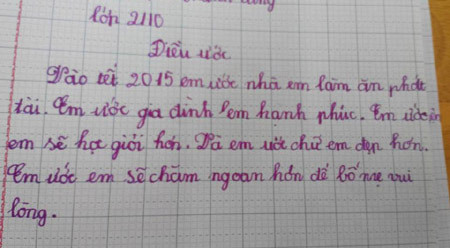 Lớn 2/10
Điều ước
Vào tết 2015 em ước nhà em làm ăn phát
tài. Em ước gia đình em hạnh phúc. Em ước
em sẽ học giỏi hơn. Và em ước chữ em đẹp hơn.
Em ước em sẽ chăm ngoan hơn để bố mẹ vui
lòng.